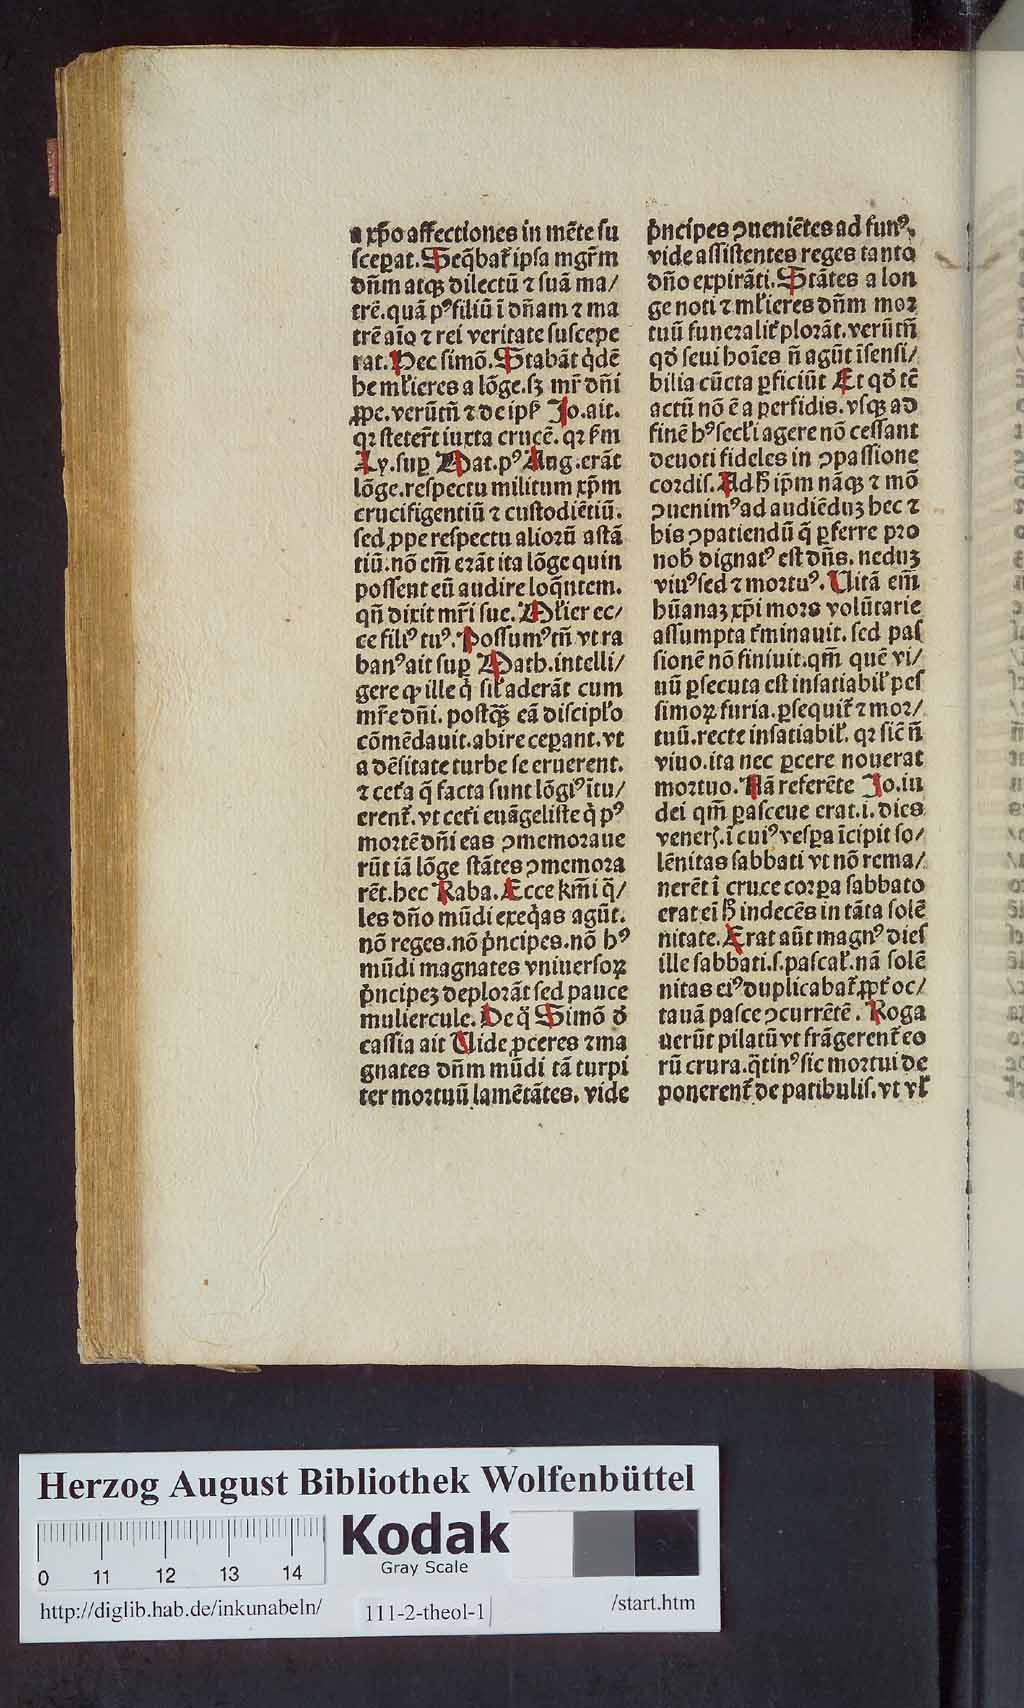 a xp̄o affectiones in mēte su
sceꝑat. Seq̄bat᷑ ipsa mgr̄m
dn̄m atqꝫ dilectū ⁊ suā ma/
trē. quā pꝰ filiū ī dn̄am ⁊ ma
trē aīo ⁊ rei veritate suscepe
rat. Hec simō. Stabāt q̇dē
he ml̄ieres a lōge. sꝫ mr̄ dn̄i
ꝓpe. verūtn̄ ⁊ de ip̄ẜ Jo. ait.
qꝛ steter̄t iuxta crucē. qꝛ ẜm
Ly. suꝑ Mat. pꝰ Aug. erāt
lōge. respectu militum xp̄m
crucifigentiū ⁊ custodiētiū.
sed ꝓpe respectu alioꝛū astā
tiū. nō em̄ erāt ita lōge quin
possent eū audire loq̄ntem.
qn̄ dixit mr̄i sue. Ml̄ier ec/
ce filiꝰ tuꝰ. Possumꝰ tn̄ vt ra
banꝰ ait suꝑ Math. intelli/
gere ꝙ ille q̇ sil̄ aderāt cum
mr̄e dn̄i. postq̄ꝫ eā discipl̄o
cōmēdauit. abire ceꝑant. vt
a dēsitate turbe se eruerent.
⁊ cet᷑a q̄ facta sunt lōgiꝰ ītu/
erent᷑. vt cet᷑i euāgeliste q̇ pꝰ
moꝛtē dn̄i eas ꝯmemoꝛaue
rūt iā lōge stātes ꝯmemoꝛa
rēt. hec Raba. Ecce km̄i q̄/
les dn̄o mūdi exeq̇as agūt.
nō reges. nō ṗncipes. nō hꝰ
mūdi magnates vniuersoꝝ
ṗncipeꝫ deploꝛāt sed pauce
muliercule. De q̄ Simō đ
cassia ait Uide ꝓceres ⁊ ma
gnates dn̄m mūdi tā turpi
ter moꝛtuū lamētātes. vide
ṗncipes ꝯueniētes ad funꝰ.
vide assistentes reges tanto
dn̄o expirāti. Stātes a lon
ge noti ⁊ ml̄ieres dn̄m moꝛ
tuū funeralit᷑ ploꝛāt. verūtn̄
qđ seui hoīes n̄ agūt īsensi/
bilia cūcta ꝑficiūt Et qđ tē
actū nō ē a perfidis. vsqꝫ ad
finē hꝰ secl̄i agere nō cessant
deuoti fideles in ꝯpassione
coꝛdis. Ad h̄ ip̄m nāqꝫ ⁊ mō
ꝯuenimꝰ ad audiēduꝫ hec ⁊
his ꝯpatiendū q̄ ꝑferre pꝛo
nob̄ dignatꝰ est dn̄s. neduꝫ
viuꝰ sed ⁊ moꝛtuꝰ. Uitā em̄
hūanaꝫ xp̄i moꝛs volūtarie
assumpta t᷑minauit. sed pas
sionē nō finiuit. qm̄ quē vi/
uū ꝑsecuta est insatiabil̄ pes
simoꝝ furia. ꝑsequit᷑ ⁊ moꝛ/
tuū. recte insatiabil̄. qꝛ sic n̄
viuo. ita nec ꝑcere nouerat
moꝛtuo. Nā referēte Jo. iu
dei qm̄ ꝑasceue erat. i. dies
vener̄. ī cuiꝰ vesꝑa īcipit so/
lēnitas sabbati vt nō rema/
nerēt ī cruce coꝛꝑa sabbato
erat eī h̄ indecēs in tāta solē
nitate. Erat aūt magnꝰ dies
ille sabbati. s. pascal̄. nā solē
nitas eiꝰ duplicabat᷑ ꝓpt᷑ oc/
tauā pasce ꝯcurrētē. Roga
uerūt pilatū vt frāgerent᷑ eo
rū crura. q̄tinꝰ sic moꝛtui de
ponerent᷑ de patibulis. vt vl̄
Herzog August Bibliothek Wolfenbüttel
Kodak
Gray Scale
0 11 12 13 14
http://diglib.hab.de/inkunabeln/ 111-2-theol-1 /start.htm